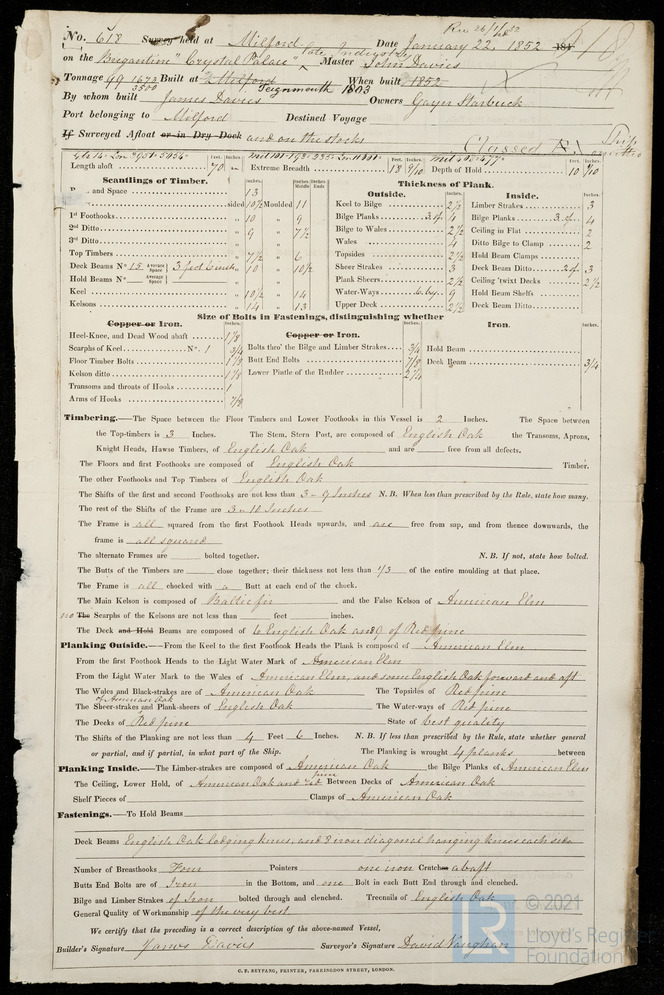 Rec 26/1/52
No. 618 Survey held at Milford Date January 22, 1852 184
on the Brigantine "Crystal Palace" late Industry Master John Davies
Tonnage 99 1673/3500 Built at Milford Teignmouth When built 1852 1803
By whom built James Davies Owners Gayer Starbuck
Port belonging to Milford Destined Voyage
If Surveyed Afloat or in Dry Dock and on the stocks
Classed
Length aloft 70 Extreme Breadth 18 9/10 Depth of Hold 10 9/10
Feet. Inches. Feet. Inches. Feet. Inches.
Scantlings of Timber. Inches. Inches. Middle Inches. Ends
and Space 13
sided 10½ Moulded 11
1st Foothooks 10 " 9
2nd Ditto 9 " 7½
3rd Ditto "
Top Timbers 7½ " 6
Deck Beams No 15 Average Space 3 feet 6 inches 10 " 10½
Hold Beams No Average Space "
Keel 10½ " 14
Kelsons 14 " 13
Thickness of Plank.
Outside. Inches.
Keel to Bilge 2½
Bilge Planks 3 of 4
Bilge to Wales 2½
Wales 4
Topsides 2½
Sheer Strakes 3
Plank Sheers 2½
Water-Ways 6 by 9
Upper Deck 2½
Inside. Inches.
Limber Strakes 3
Bilge Planks 3 of 4
Ceiling in Flat 2
Ditto Bilge to Clamp 2
Hold Beam Clamps
Deck Beam Ditto 2 of 3
Ceiling 'twixt Decks 2½
Hold Beam Shelfs
Deck Beam Ditto
Size of Bolts in Fastenings, distinguishing whether
Copper or Iron. Inches.
Heel-Knee, and Dead Wood abaft 1⅛
Scarphs of Keel No. 1 ¾
Floor Timber Bolts 1⅛
Kelson ditto 1⅛
Transoms and throats of Hooks 1
Arms of Hooks ⅞
Copper or Iron. Inches.
Bolts thro' the Bilge and Limber Strakes ¾
Butt End Bolts ⅞
Lower Pintle of the Rudder 2¼
Iron. Inches.
Hold Beam
Deck Beam ¾
Timbering.—The Space between the Floor Timbers and Lower Foothooks in this Vessel is 2 Inches. The Space between
the Top-timbers is 3 Inches. The Stem, Stern Post, are composed of English Oak the Transoms, Aprons,
Knight Heads, Hawse Timbers, of English Oak and are free from all defects.
The Floors and first Foothooks are composed of English Oak Timber.
The other Foothooks and Top Timbers of English Oak
The Shifts of the first and second Foothooks are not less than 3-9 Inches N.B. When less than prescribed by the Rule, state how many.
The rest of the Shifts of the Frame are 3-10 Inches
The Frame is all squared from the first Foothook Heads upwards, and are free from sap, and from thence downwards, the
frame is all squared
The alternate Frames are bolted together. N.B. If not, state how bolted.
The Butts of the Timbers are close together; their thickness not less than 1/3 of the entire moulding at that place.
The Frame is all chocked with a Butt at each end of the chock.
The Main Kelson is composed of Baltic fir and the False Kelson of American Elm
no The Scarphs of the Kelsons are not less than feet inches.
The Deck and Hold Beams are composed of 6 English Oak and 9 of Red pine
Planking Outside.—From the Keel to the first Foothook Heads the Plank is composed of American Elm
From the first Foothook Heads to the Light Water Mark of American Elm
From the Light Water Mark to the Wales of American Elm, and some English Oak forward and aft
The Wales and Black-strakes are of American Oak The Topsides of Red pine
of American Oak
The Sheer-strakes and Plank-sheers of English Oak The Water-ways of Red pine
The Decks of Red pine State of best quality
The Shifts of the Planking are not less than 4 Feet 6 Inches. N.B. If less than prescribed by the Rule, state whether general
or partial, and if partial, in what part of the Ship. The Planking is wrought 4 planks between
Planking Inside.—The Limber-strakes are composed of American Oak the Bilge Planks of American Elm
The Ceiling, Lower Hold, of American Oak and red pine Between Decks of American Oak
Shelf Pieces of Clamps of American Oak
Fastenings.—To Hold Beams
Deck Beams English Oak lodging knees, and 3 iron diagonal hanging knees each side
Number of Breasthooks Four Pointers one iron Crutches abaft
Butts End Bolts are of Iron in the Bottom, and one Bolt in each Butt End through and clenched.
Bilge and Limber Strakes of Iron bolted through and clenched. Treenails of English Oak
General Quality of Workmanship of the very best
We certify that the preceding is a correct description of the above-named Vessel,
Builder's Signature James Davies Surveyor's Signature David Vaughan
C. F. SEYFANG, PRINTER, FARRINGDON STREET, LONDON.
LR © 2021
Lloyd's Register
Foundation